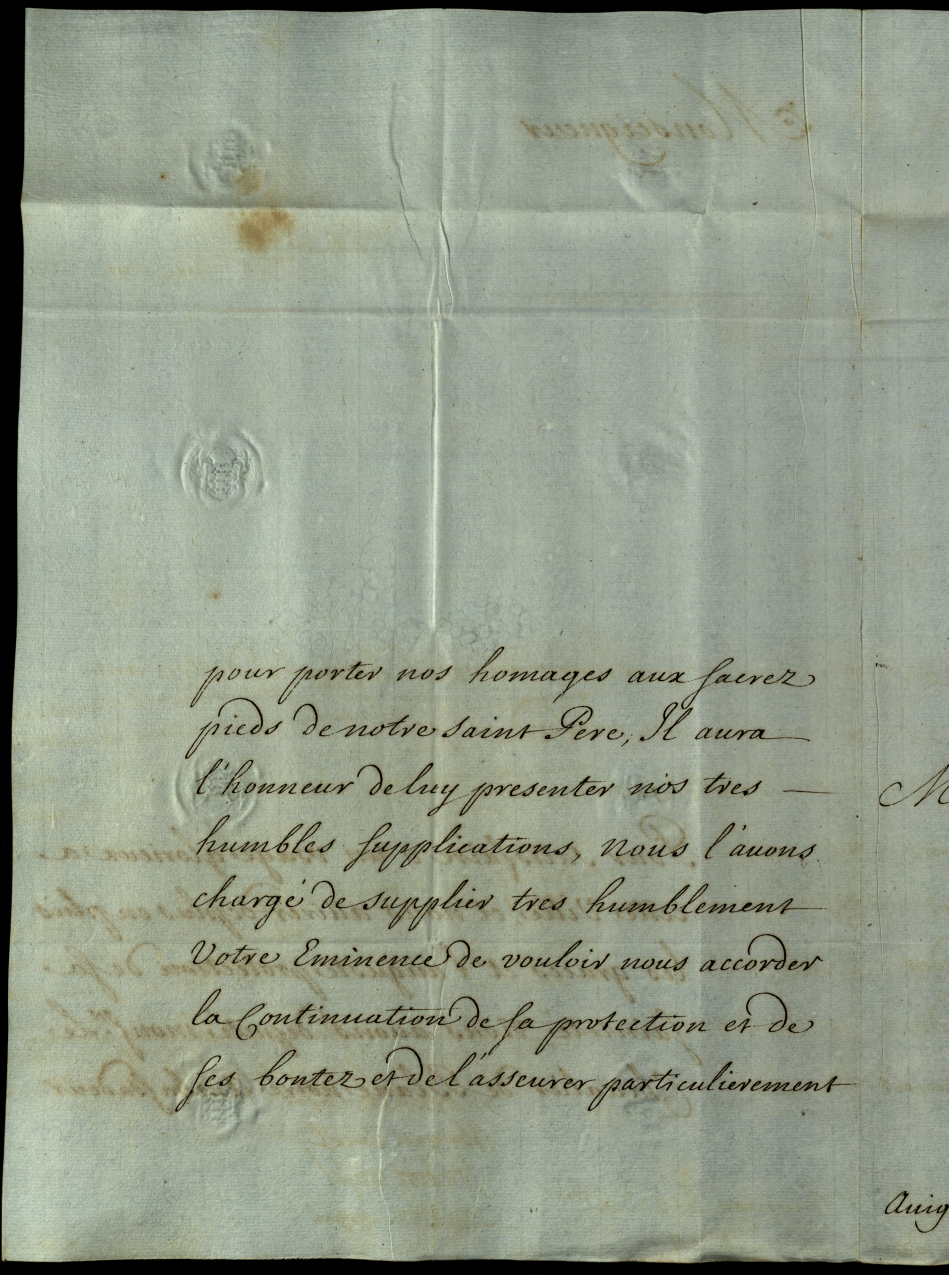 pour porter nos homages aux sacrez
pieds de notre saint Pere, Il aura
l'honneur de luy presenter nos tres
humbles supplications, nous l'avons
chargé de supplier tres humblement
Votre Eminence de vouloir nous accorder
la Continuation de sa protection et de
ses bontez et de l'asseurer particulierement